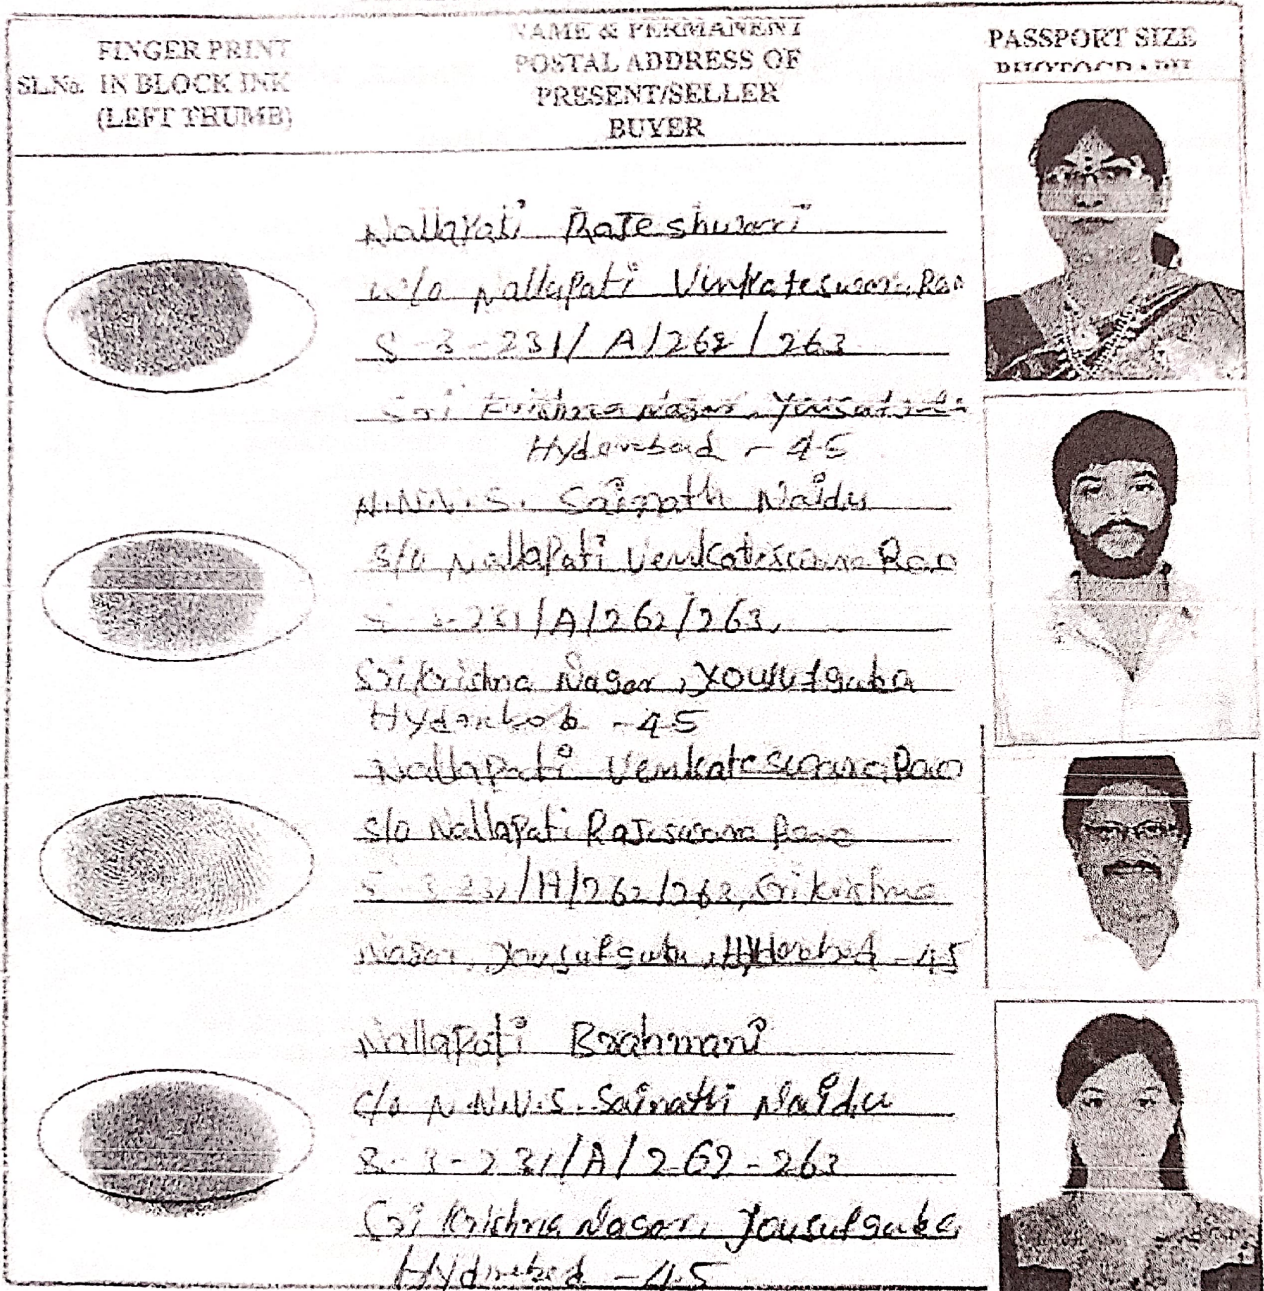 SL.No.
FINGER PRINT
IN BLOCK INK
(LEFT THUMB)
NAME & PERMANENT
POSTAL ADDRESS OF
PRESENT/SELLER
BUYER
PASSPORT SIZE
PHOTOGRAPH
Nallapati Rajeshwari
w/o Nallapati Venkateswara Rao
8-3-231/A/262/263
Sri Krishna Nagar, Yousufguda
Hyderabad - 45
N.N.V.S. Sainath Naidu
S/o Nallapati Venkateswara Rao
8-3-231/A/262/263,
Sri Krishna Nagar, Yousufguda
Hyderabad - 45
Nallapati Venkateswara Rao
s/o Nallapati Rajeswara Rao
8-3-231/A/262/263, Sri Krishna
Nagar, Yousufguda, Hyderabad - 45
Nallapati Brahmani
c/o N.N.V.S. Sainath Naidu
8-3-231/A/262-263
Sri Krishna Nagar, Yousufguda
Hyderabad - 45